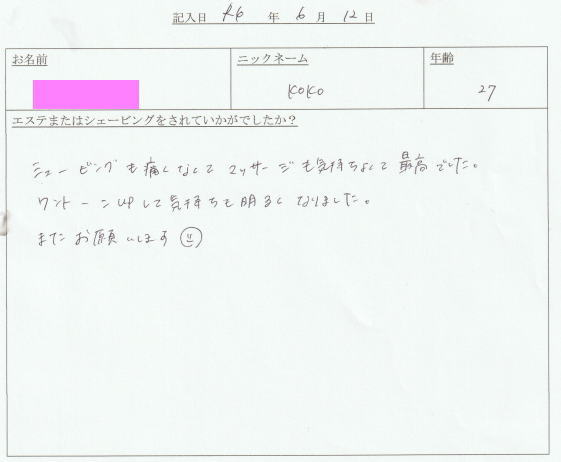 記入日 R6 年 6 月 12 日
お名前 ニックネーム 年齢
KOKO 27
エステまたはシェービングをされていかがでしたか？
シェービングも痛くなくてマッサージも気持ちよくて最高でした。
ワントーンUPして気持ちも明るくなりました。
またお願いします